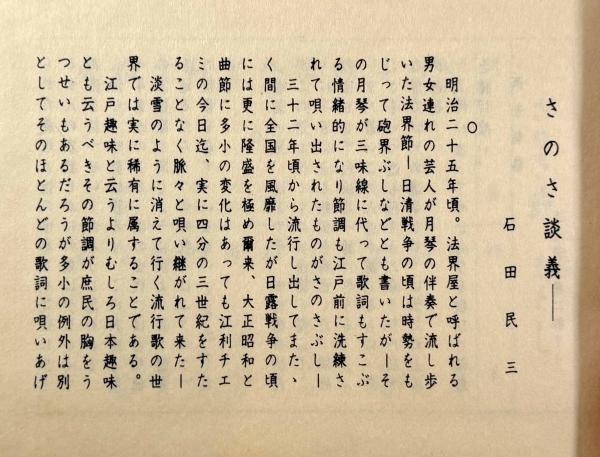 さのさ談義――
石田民三
○
明治二十五年頃。法界屋と呼ばれる
男女連れの芸人が月琴の伴奏で流し歩
いた法界節―日清戦争の頃は時勢をも
じって砲界ぶしなどとも書いたが―そ
の月琴が三味線に代って歌詞もすこぶ
る情緒的になり節調も江戸前に洗練さ
れて唄い出されたものがさのさぶし―
三十二年頃から流行し出してまたゝ
く間に全国を風靡したが日露戦争の頃
には更に隆盛を極め爾来、大正昭和と
曲節に多小の変化はあっても江利チエ
ミの今日迄、実に四分の三世紀をすた
ることなく脈々と唄い継がれて来た―
淡雪のように消えて行く流行歌の世
界では実に稀有に属することである。
江戸趣味と云うよりむしろ日本趣味
とも云うべきその節調が庶民の胸をう
つせいもあるだろうが多小の例外は別
としてそのほとんどの歌詞に唄いあげ